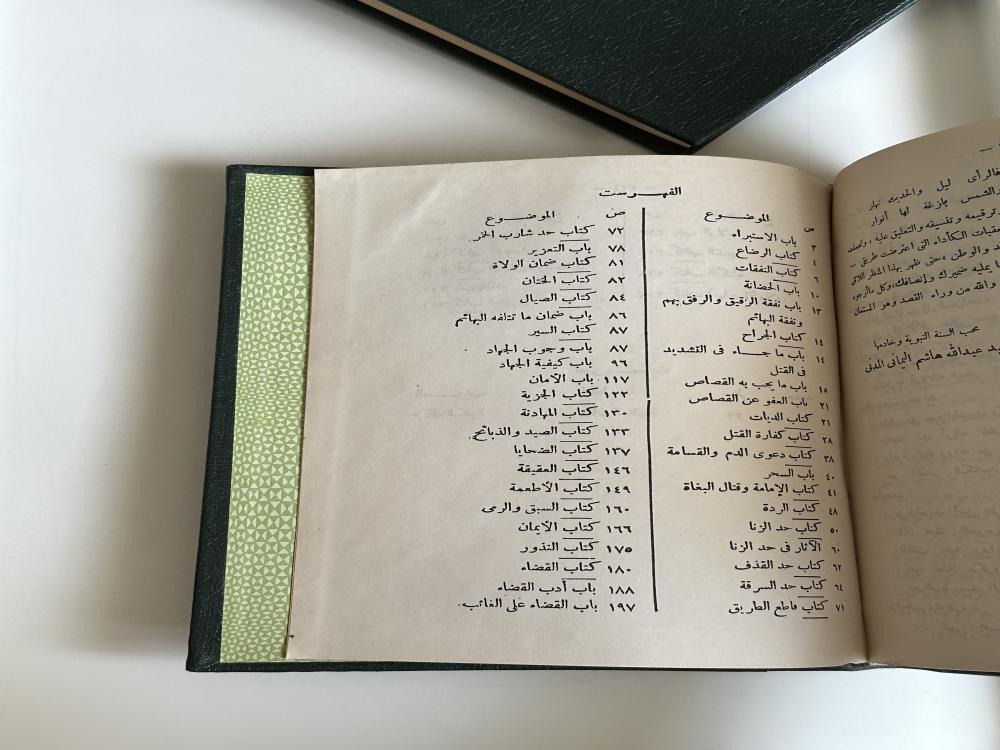 الفهرست
ص الموضوع
٣ باب الاستبراء
٤ كتاب الرضاع
٦ كتاب النفقات
١٠ باب الحضانة
١٣ باب نفقة الرقيق والرفق بهم
ونفقة البهائم
١٤ كتاب الجراح
١٤ باب ما جاء فى التشديد
فى القتل
١٥ باب ما يجب به القصاص
٢١ باب العفو عن القصاص
٢١ كتاب الديات
٢٨ كتاب كفارة القتل
٣٨ كتاب دعوى الدم والقسامة
٤٠ باب السحر
٤١ كتاب الإمامة وقتال البغاة
٤٨ كتاب الردة
٥٠ كتاب حد الزنا
٦٠ الآثار فى حد الزنا
٦٢ كتاب حد القذف
٦٤ كتاب حد السرقة
٧١ كتاب قاطع الطريق
ص الموضوع
٧٢ كتاب حد شارب الخمر
٧٨ باب التعزير
٨١ كتاب ضمان الولاة
٨٢ كتاب الختان
٨٤ كتاب الصيال
٨٦ باب ضمان ما تتلفه البهائم
٨٧ كتاب السير
٨٧ باب وجوب الجهاد
٩٦ باب كيفية الجهاد
١١٧ باب الأمان
١٢٢ كتاب الجزية
١٣٠ كتاب المهادنة
١٣٣ كتاب الصيد والذبائح
١٣٧ كتاب الضحايا
١٤٦ كتاب العقيقة
١٤٩ كتاب الأطعمة
١٦٠ كتاب السبق والرمى
١٦٦ كتاب الأيمان
١٧٥ كتاب النذور
١٨٠ كتاب القضاء
١٨٨ باب أدب القضاء
١٩٧ باب القضاء على الغائب
فالرأى ليل والحديث نهار
والشمس بازغة لها أنوار
ترقيمه وتنسيقه والتعليق عليه ، وتحملت
عقبات الكأداء التى اعترضت طريقى –
والوطن ، حتى ظهر بهذا المنظر اللائق
يمليه ضميرك وإنصافك، وكل ما أرجوه
والله من وراء القصد وهو المستعان
محب السنة النبوية وخادمها
عبدالله هاشم اليمانى المدنى